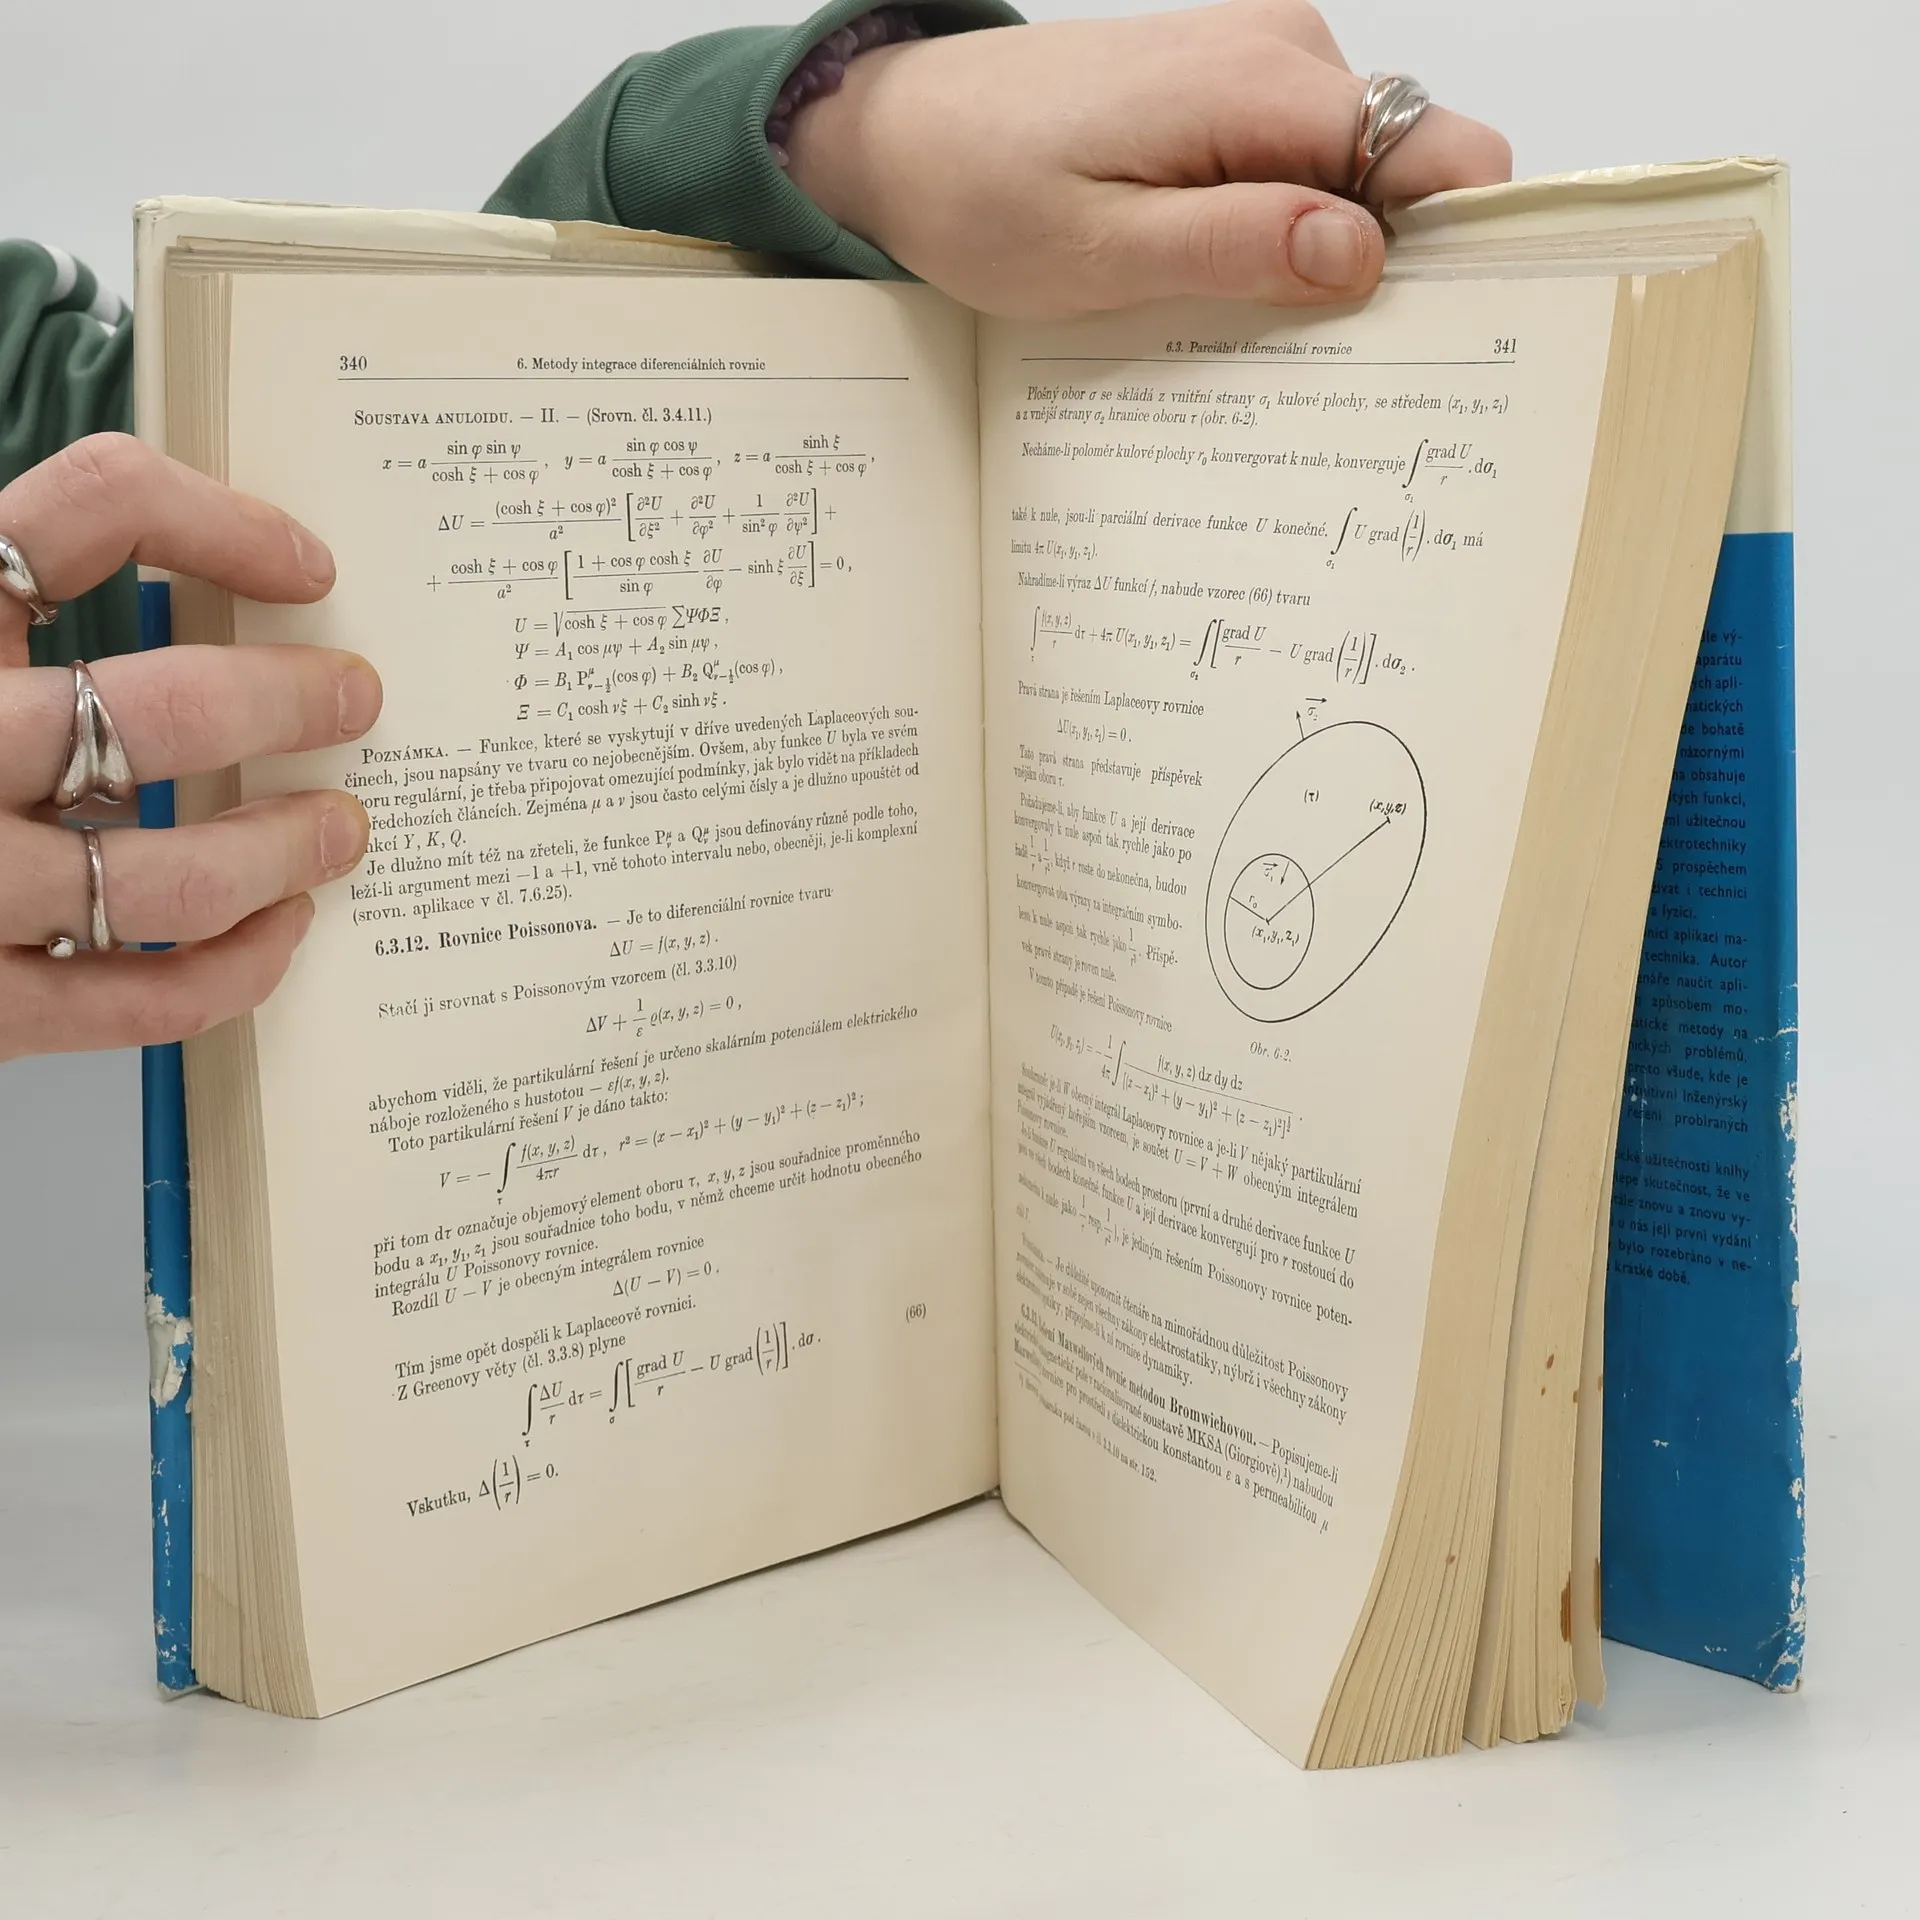 340 6. Metody integrace diferenciálních rovnic
SOUSTAVA ANULOIDU. — II. — (Srovn. čl. 3.4.11.)
x = a sin φ sin ψ / (cosh ξ + cos φ), y = a sin φ cos ψ / (cosh ξ + cos φ), z = a sinh ξ / (cosh ξ + cos φ),
ΔU = (cosh ξ + cos φ)² / a² [∂²U/∂ξ² + ∂²U/∂φ² + 1/sin² φ ∂²U/∂ψ²] +
+ (cosh ξ + cos φ) / a² [(1 + cos φ cosh ξ) / sin φ ∂U/∂φ − sinh ξ ∂U/∂ξ] = 0,
U = √(cosh ξ + cos φ) ∑ΨΦΞ,
Ψ = A₁ cos μψ + A₂ sin μψ,
Φ = B₁ P^μ_{ν−½}(cos φ) + B₂ Q^μ_{ν−½}(cos φ),
Ξ = C₁ cosh νξ + C₂ sinh νξ.
POZNÁMKA. — Funkce, které se vyskytují v dříve uvedených Laplaceových sou-
činech, jsou napsány ve tvaru co nejobecnějším. Ovšem, aby funkce U byla ve svém
oboru regulární, je třeba připojovat omezující podmínky, jak bylo vidět na příkladech
předchozích článcích. Zejména μ a ν jsou často celými čísly a je dlužno upouštět od
nkcí Y, K, Q.
Je dlužno mít též na zřeteli, že funkce P^μ_ν a Q^μ_ν jsou definovány různě podle toho,
leží-li argument mezi −1 a +1, vně tohoto intervalu nebo, obecněji, je-li komplexní
(srovn. aplikace v čl. 7.6.25).
6.3.12. Rovnice Poissonova. — Je to diferenciální rovnice tvaru
ΔU = f(x, y, z).
Stačí ji srovnat s Poissonovým vzorcem (čl. 3.3.10)
ΔV + 1/ε ϱ(x, y, z) = 0,
abychom viděli, že partikulární řešení je určeno skalárním potenciálem elektrického
náboje rozloženého s hustotou — εf(x, y, z).
Toto partikulární řešení V je dáno takto:
V = − ∫_τ f(x, y, z) / 4πr dτ, r² = (x − x₁)² + (y − y₁)² + (z − z₁)²;
při tom dτ označuje objemový element oboru τ, x, y, z jsou souřadnice proměnného
bodu a x₁, y₁, z₁ jsou souřadnice toho bodu, v němž chceme určit hodnotu obecného
integrálu U Poissonovy rovnice.
Rozdíl U − V je obecným integrálem rovnice
Δ(U − V) = 0.
Tím jsme opět dospěli k Laplaceově rovnici.
Z Greenovy věty (čl. 3.3.8) plyne
∫_τ ΔU/r dτ = ∫_σ [grad U / r − U grad (1/r)] . dσ. (66)
Vskutku, Δ(1/r) = 0.
6.3. Parciální diferenciální rovnice 341
Plošný obor σ se skládá z vnitřní strany σ₁ kulové plochy, se středem (x₁, y₁, z₁)
a z vnější strany σ₂ hranice oboru τ (obr. 6-2).
Necháme-li poloměr kulové plochy r₀ konvergovat k nule, konverguje ∫_σ₁ grad U / r . dσ₁
také k nule, jsou-li parciální derivace funkce U konečné. ∫_σ₁ U grad (1/r) . dσ₁ má
limitu 4π U(x₁, y₁, z₁).
Nahradíme-li výraz ΔU funkcí f, nabude vzorec (66) tvaru
∫_τ f(x, y, z) / r dτ + 4π U(x₁, y₁, z₁) = ∫_σ₂ [grad U / r − U grad (1/r)] . dσ₂.
Pravá strana je řešením Laplaceovy rovnice
ΔU(x₁, y₁, z₁) = 0.
Tato pravá strana představuje příspěvek
vnějšku oboru τ.
Požadujeme-li, aby funkce U a její derivace
konvergovaly k nule aspoň tak rychle jako po
řadě 1/r a 1/r², když r roste do nekonečna, budou
konvergovat oba výrazy za integračním symbo-
lem k nule aspoň tak rychle jako 1/r³. Příspě-
vek pravé strany je roven nule.
V tomto případě je řešení Poissonovy rovnice
σ₂
(τ)
(x,y,z)
σ₁
r₀
(x₁,y₁,z₁)
Obr. 6-2.
U(x₁, y₁, z₁) = − 1/4π ∫ f(x, y, z) dx dy dz / [(x − x₁)² + (y − y₁)² + (z − z₁)²]^½.
Souhrnně: je-li W obecný integrál Laplaceovy rovnice a je-li V nějaký partikulární
integrál vyjádřený hořejším vzorcem, je součet U = V + W obecným integrálem
Poissonovy rovnice.
Je-li funkce U regulární ve všech bodech prostoru (první a druhé derivace funkce U
jsou ve všech bodech konečné; funkce U a její derivace konvergují pro r rostoucí do
nekonečna k nule jako 1/r resp. 1/r²), je jediným řešením Poissonovy rovnice poten-
ciál V.
Poznámka. — Je důležité upozornit čtenáře na mimořádnou důležitost Poissonovy
v sobě nejen všechny zákony elektrostatiky, nýbrž i všechny zákony
optiky, připojíme-li k ní rovnice dynamiky.
6.3.13. Řešení Maxwellových rovnic metodou Bromwichovou. — Popisujeme-li
elektromagnetické pole v racionalisované soustavě MKSA (Giorgiově),¹) nabudou
Maxwellovy rovnice pro prostředí s dielektrickou konstantou ε a s permeabilitou μ
pod čarou v čl. 3.3.10 na str. 152.
le vý-
aparátu
ch apli-
matických
de bohatě
názornými
ha obsahuje
tých funkcí,
mi užitečnou
ektrotechniky
S prospěchem
žívat i technici
a fyzici.
nicí aplikaci ma-
technika. Autor
enáře naučit apli-
způsobem mo-
atické metody na
nických problémů,
proto všude, kde je
inženýrský
řešení probíraných
cké užitečnosti knihy
lépe skutečnost, že ve
ále znovu a znovu vy-
u nás její první vydání
bylo rozebráno v ne-
krátké době.